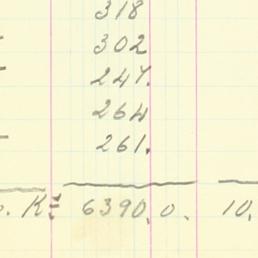 318
302
247.
264
261.
. K= 6390.0. 10.